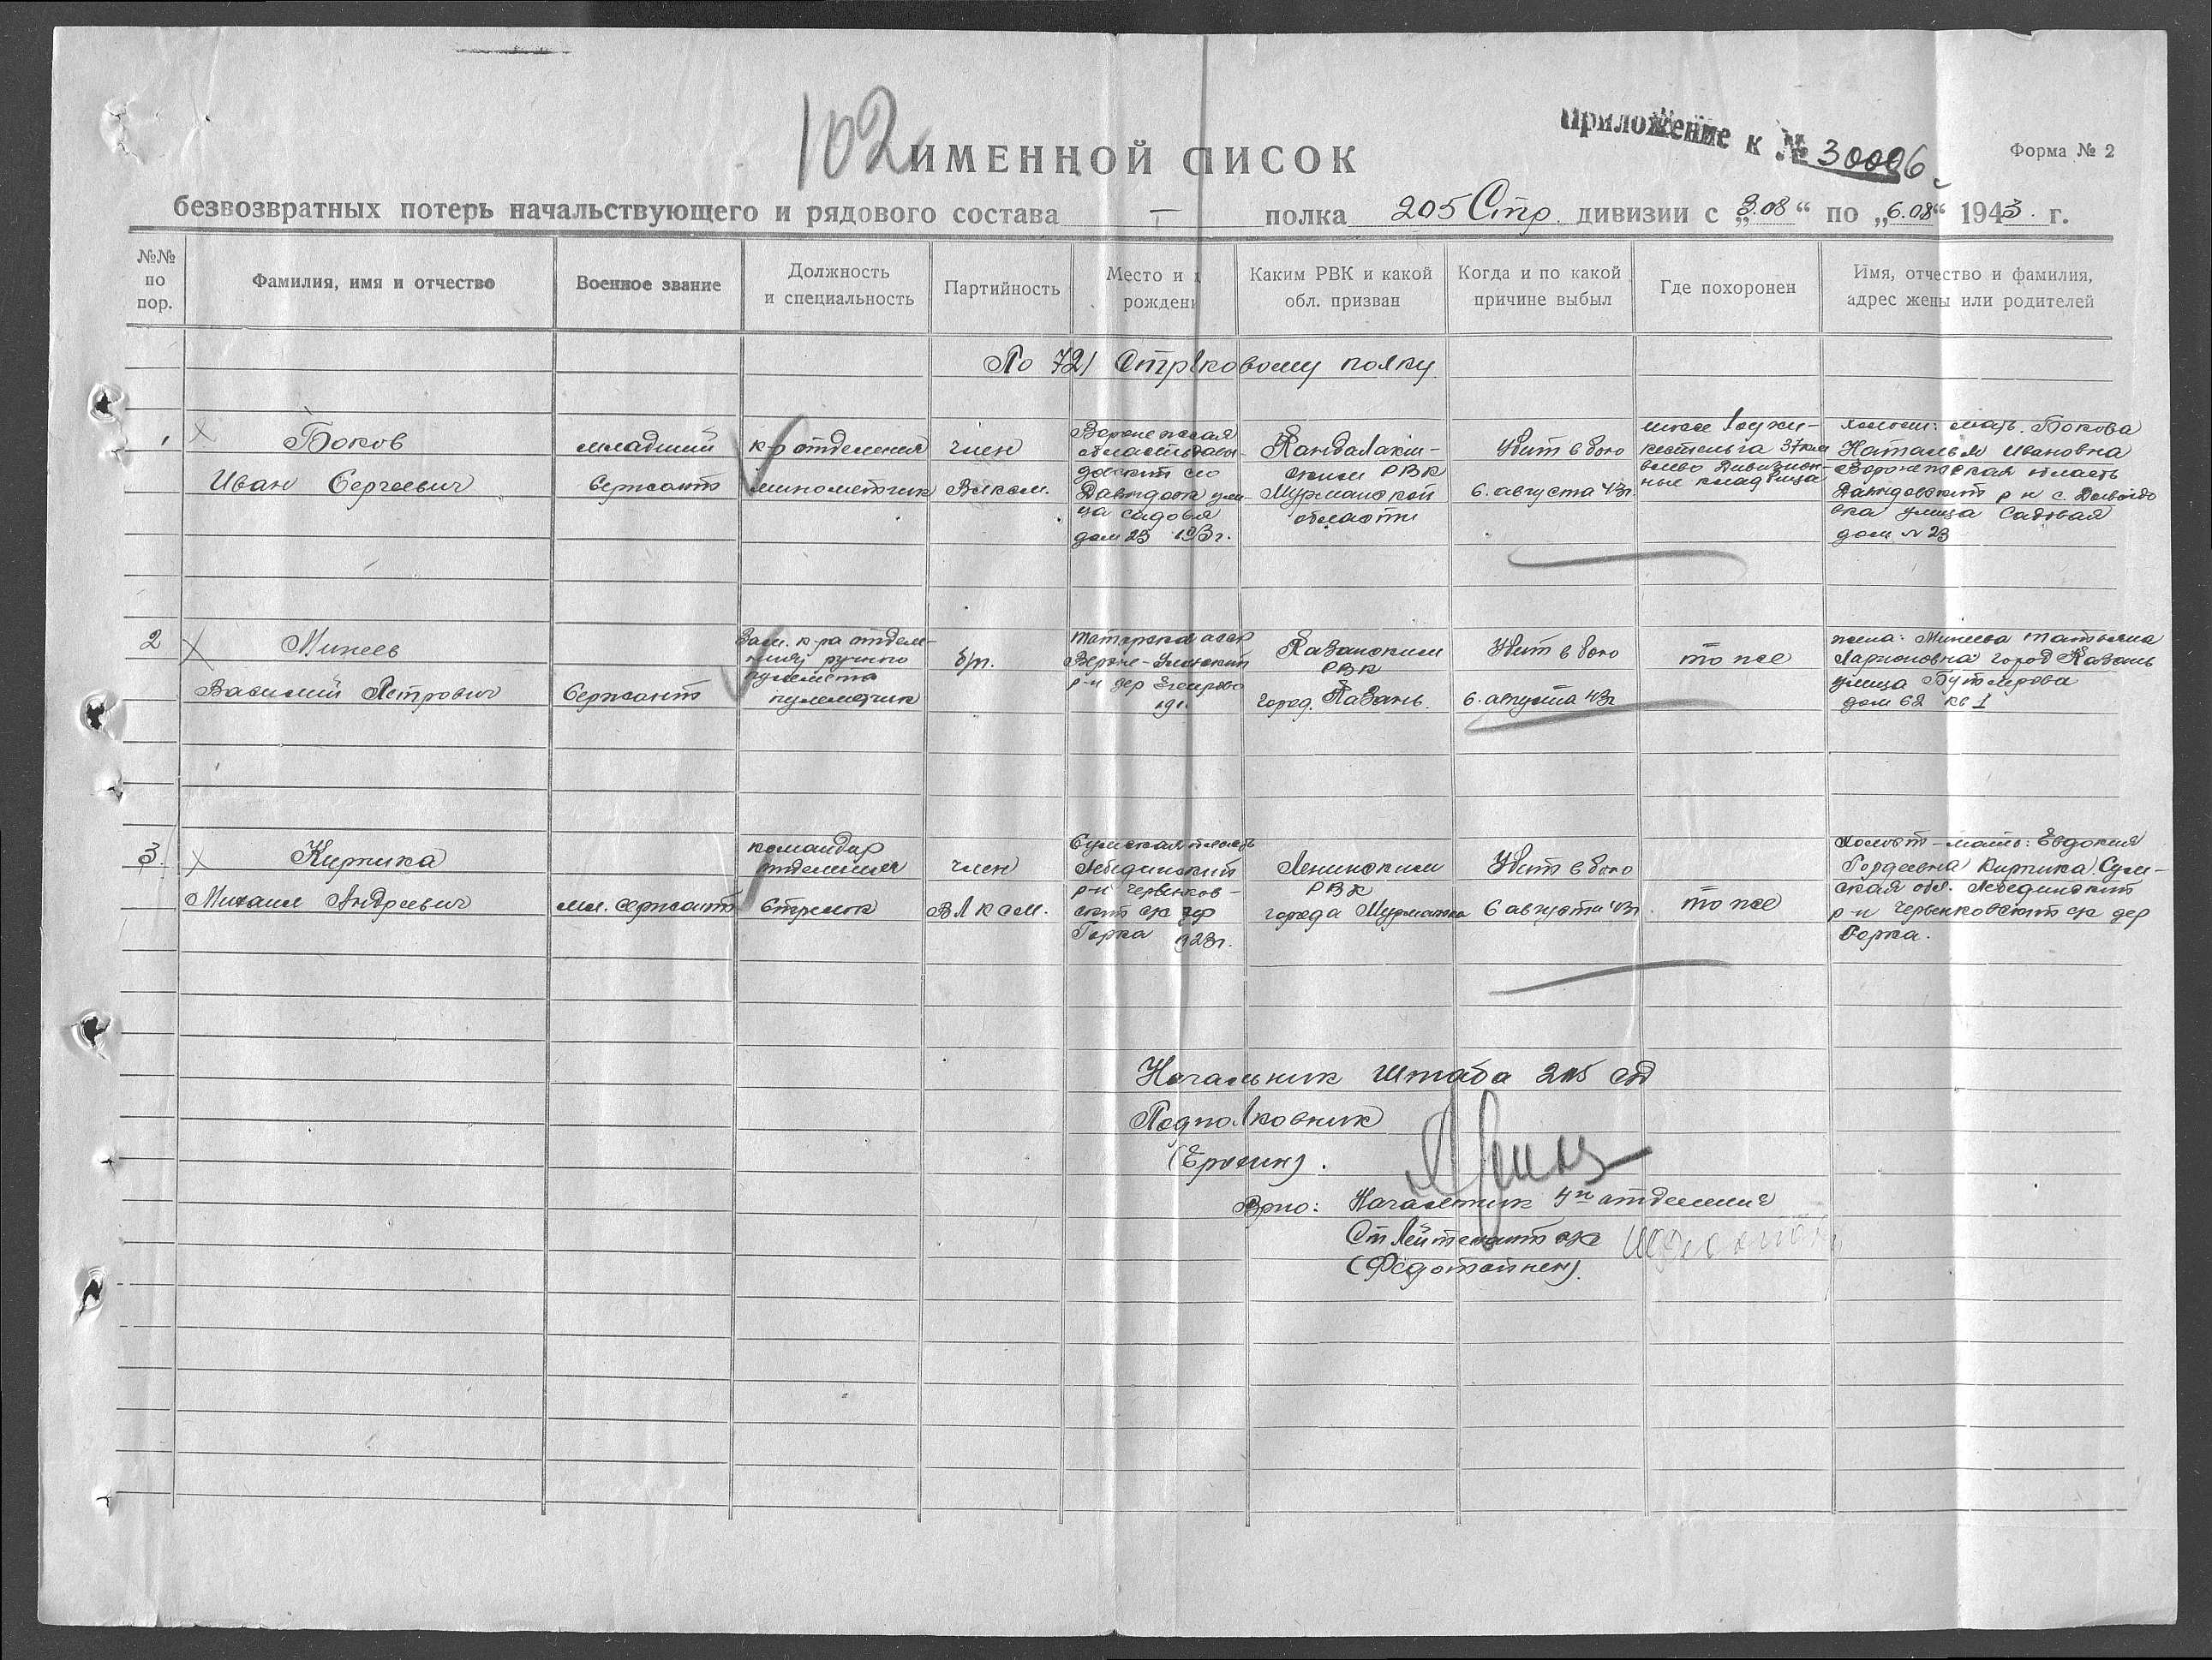 102
Приложение к № 30006
Форма № 2
ИМЕННОЙ СПИСОК
безвозвратных потерь начальствующего и рядового состава — полка 205 Стр. дивизии с „3.08“ по „6.08“ 1943 г.
№№ по пор.
Фамилия, имя и отчество
Военное звание
Должность и специальность
Партийность
Место и рождени
Каким РВК и какой обл. призван
Когда и по какой причине выбыл
Где похоронен
Имя, отчество и фамилия, адрес жены или родителей
По 721 Стрлковому полку
1
Боков
Иван Сергеевич
младший
Сержант
к-р отделения
минометчик
член
Влксм.
Воронежская
область
Давыдовк ули-
ца садовая
дом 23
Кандалакш-
ским РВК
Мурманской
области
Убит в бою
6. августа 43г
шоссе Лоухи-
кестеньга 37км
влево Дивизион-
ные кладбища
мать. Бокова
Наталья Ивановна
Воронежская область
Давыдовский р н с. Давыдо
вка улица Садовая
дом N 23
2
Минеев
Василий Петрович
Сержант
Зам. к-ра отделе-
ния ручного
пулемета
пулеметчик
б/п.
Татарская асср
Верхне-Услонский
р-н дер
Казанским
РВК
город. Казань.
Убит в бою
6. августа 43г
то же
жена: Минеева Татьяна
Ларионовна город Казань
улица Бутлерова
дом 62 кв I
3.
Кирпика
Михаил Андреевич
мл. сержант
командир
отделения
Стрелок
член
ВЛКСМ.
Сумская область
Лебединский
р-н Червенков-
ский с/с дер
Горка 1923г.
Ленинским
РВК
города Мурманска
Убит в бою
6 августа 43г
то же
Холост - мать: Евдокия
Гордеевна Кирпика Сум-
ская обл. Лебединский
р-н Червенковский с/с дер
Горка.
Начальник Штаба 205 сд
Подполковник
Врио: Начальник 4го отделения
Ст Лейтенант а/с
(Федотойнен).